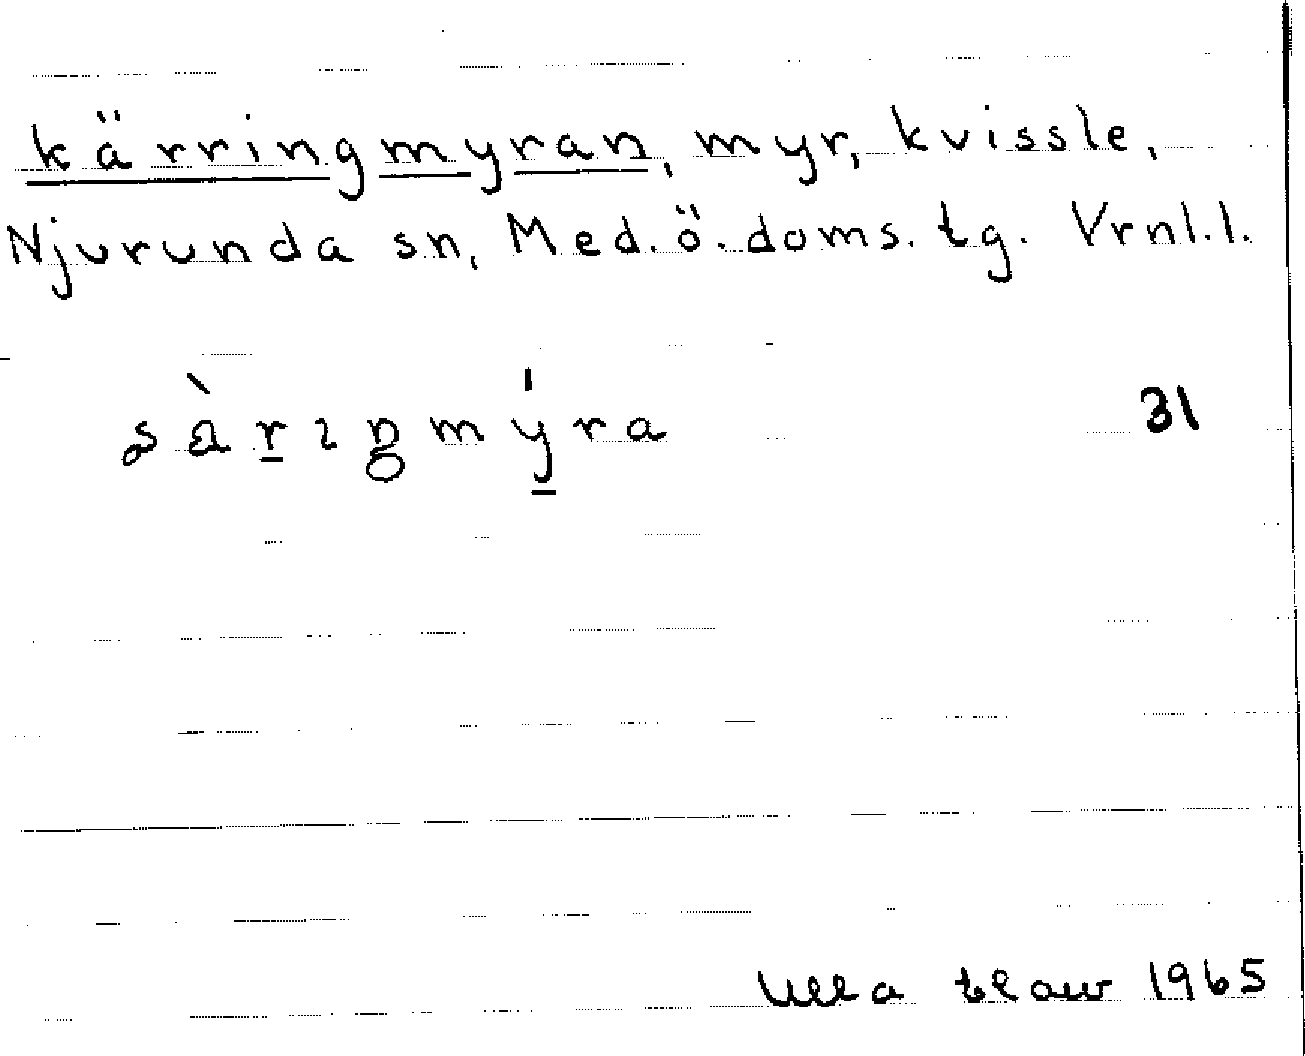 kärringmyran, myr, kvissle,
Njurunda sn, Med. ö. doms. tg. Vrnl. l.
31
Ulla 1965